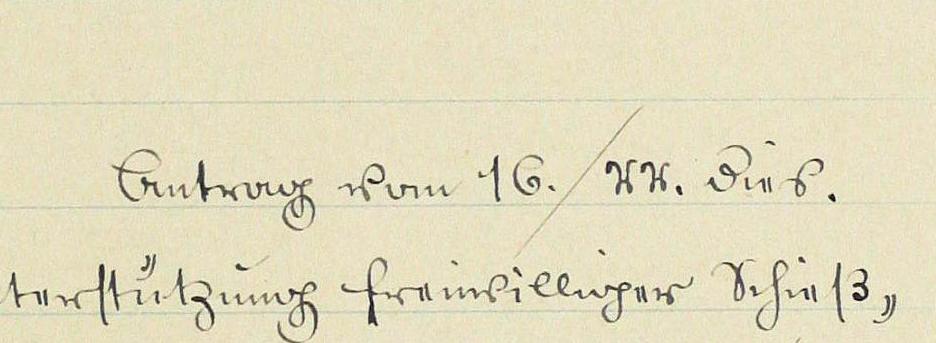 Antrag vom 16./22. dies.
terstützung freiwilliger Schieß„